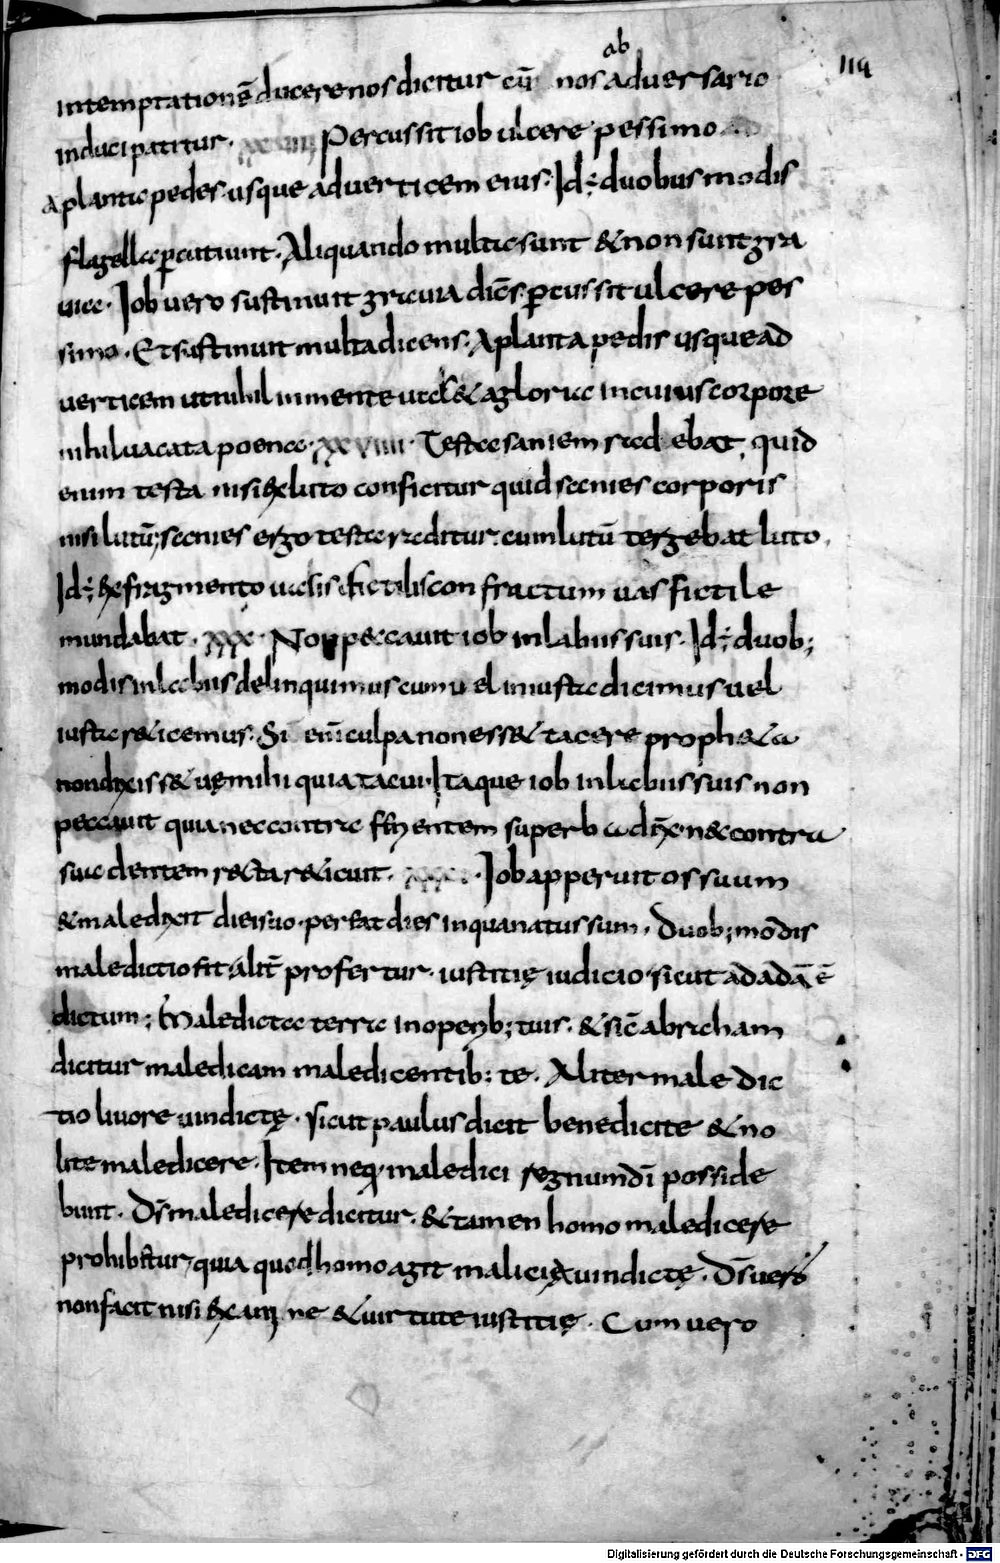 114
ab
intemptationē ducere nos dicitur cū nos adversario
induci patitur. xxviiii Percussit iob ulcere pessimo
a plantae pedes usque ad verticem eius. Id÷ duobus modis
flagella ꝑcutiunt. Aliquando multae sunt & non sunt gra
uiae. Iob vero sustinuit gravia dicēs. ꝑcussit ulcere pes
simo. Et sustinuit multa dicens. A planta pedis usque ad
verticem ut nihil in mente & a gloria in cuius corpore
nihil vacat a poena. xxviiii. Testa saniem radebat, quid
enim testa nisi ex luto conficitur quid sanies corporis
nisi lutū; sanies ergo testa raditur. cum lutū tergebat luto.
Id÷ ex fragmento fictilis confractum vas fictile
mundabat. xxx. Non peccavit iob in labiis suis. Id÷ duob;
modis in labiis delinquimus cum vel iniusta dicimus vel
iusta reticemus. Si eni culpa non ess& tacere proph&a
non dixiss& vę mihi quia tacui. Itaque iob in labiis suis non
peccavit quia nec contra superba dix n&contra
suadentem recta reticuit. xxxi. Iob apperuit os suum
& maledixit diei suo. pereat dies in qua natus sum. Duob; modis
maledictio fit alit̄ profertur. iustitię iudicio. sicut ad adā ē
dictum; Maledicta terra in operib; tuis. & sic abraham
dicitur maledicam maledicentib; te. Aliter maledic
tio livore vindictę. sicut paulus dicit benedicite & no
lite maledicere. Item neq; maledici regnum dī posside
bunt. Ds̄ maledicere dicitur. & tamen homo maledicere
prohibetur, quia quod homo agit malicia vindictę. Ds̄ vero
non facit nisi examine & virtute iustitię. Cum vero
Digitalisierung gefördert durch die Deutsche Forschungsgemeinschaft - DFG